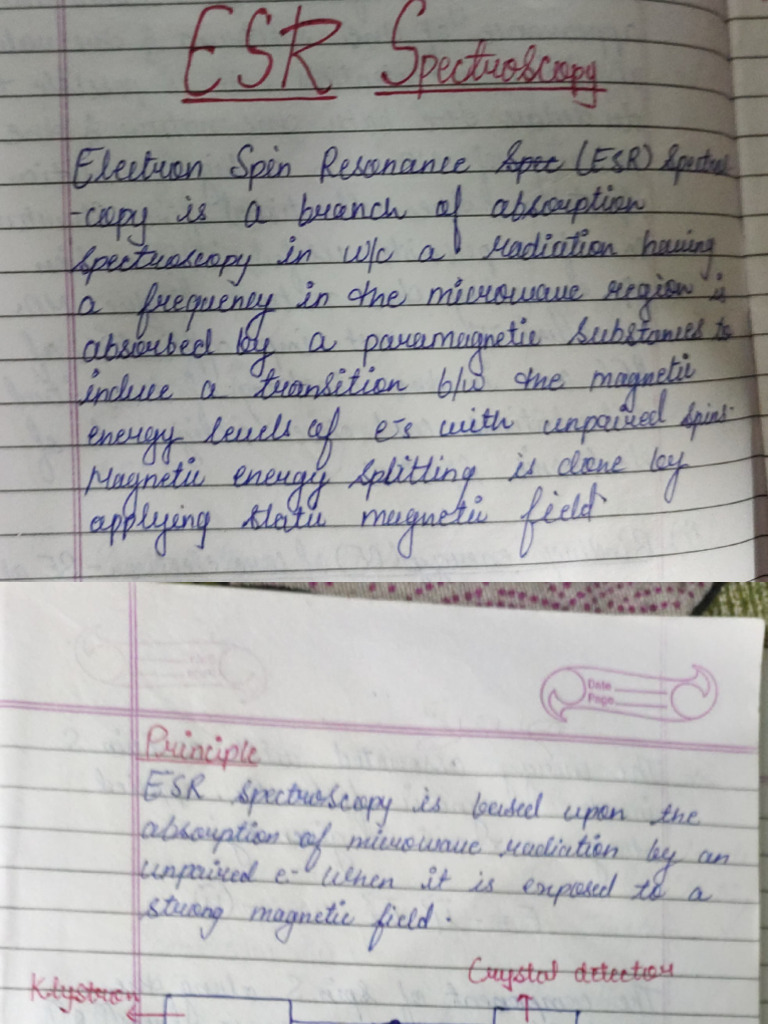 ESR Spectroscopy
Electron Spin Resonance Spec (ESR) Spectros
-copy is a branch of absorption
spectroscopy in w/c a radiation having
a frequency in the microwave region is
absorbed by a paramagnetic substances to
induce a transition b/w the magnetic
energy levels of e-s with unpaired spins.
Magnetic energy splitting is done by
applying static magnetic field
Date
Page
Principle
ESR spectroscopy is based upon the
absorption of microwave radiation by an
unpaired e- when it is exposed to a
strong magnetic field.
Crystal detection
Klystron